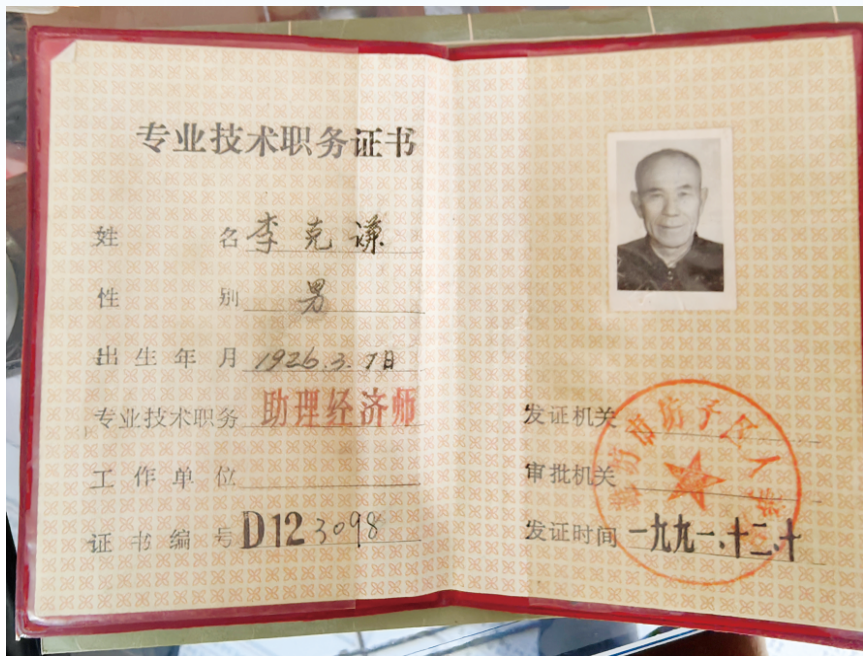 专业技术职务证书
姓名 李克谦
性别 男
出生年月 1926.3.7日
专业技术职务 助理经济师
工作单位
证书编号 D123098
发证机关
审批机关
发证时间 一九九一.十二.十
潍坊市坊子区人